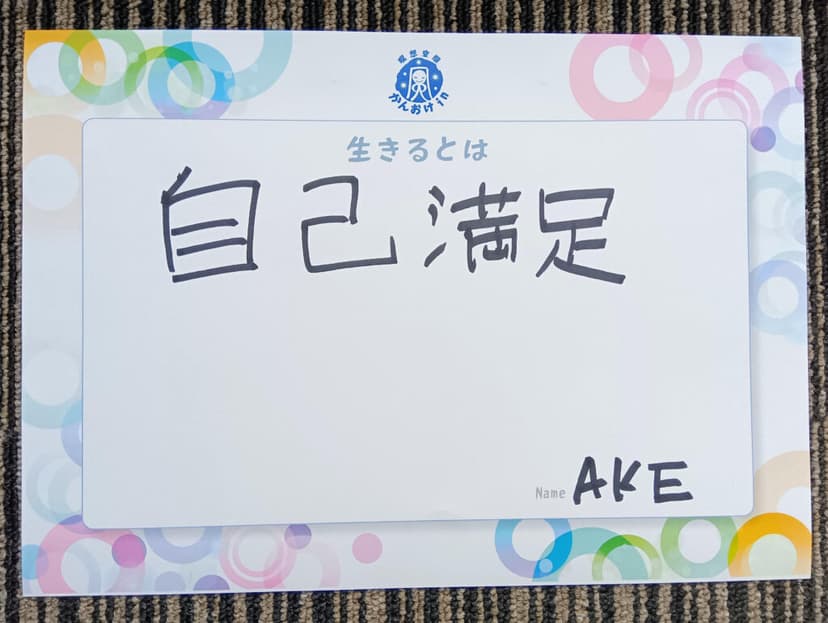 瞑想空間
かんおけin
生きるとは
自己満足
Name AKE